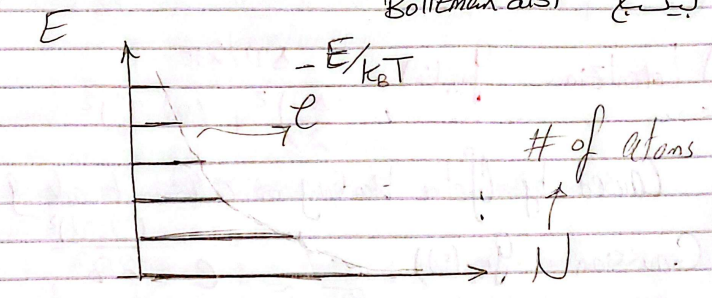 Boltzman dist يتبع
E
e^-E/k_BT
# of atoms
N